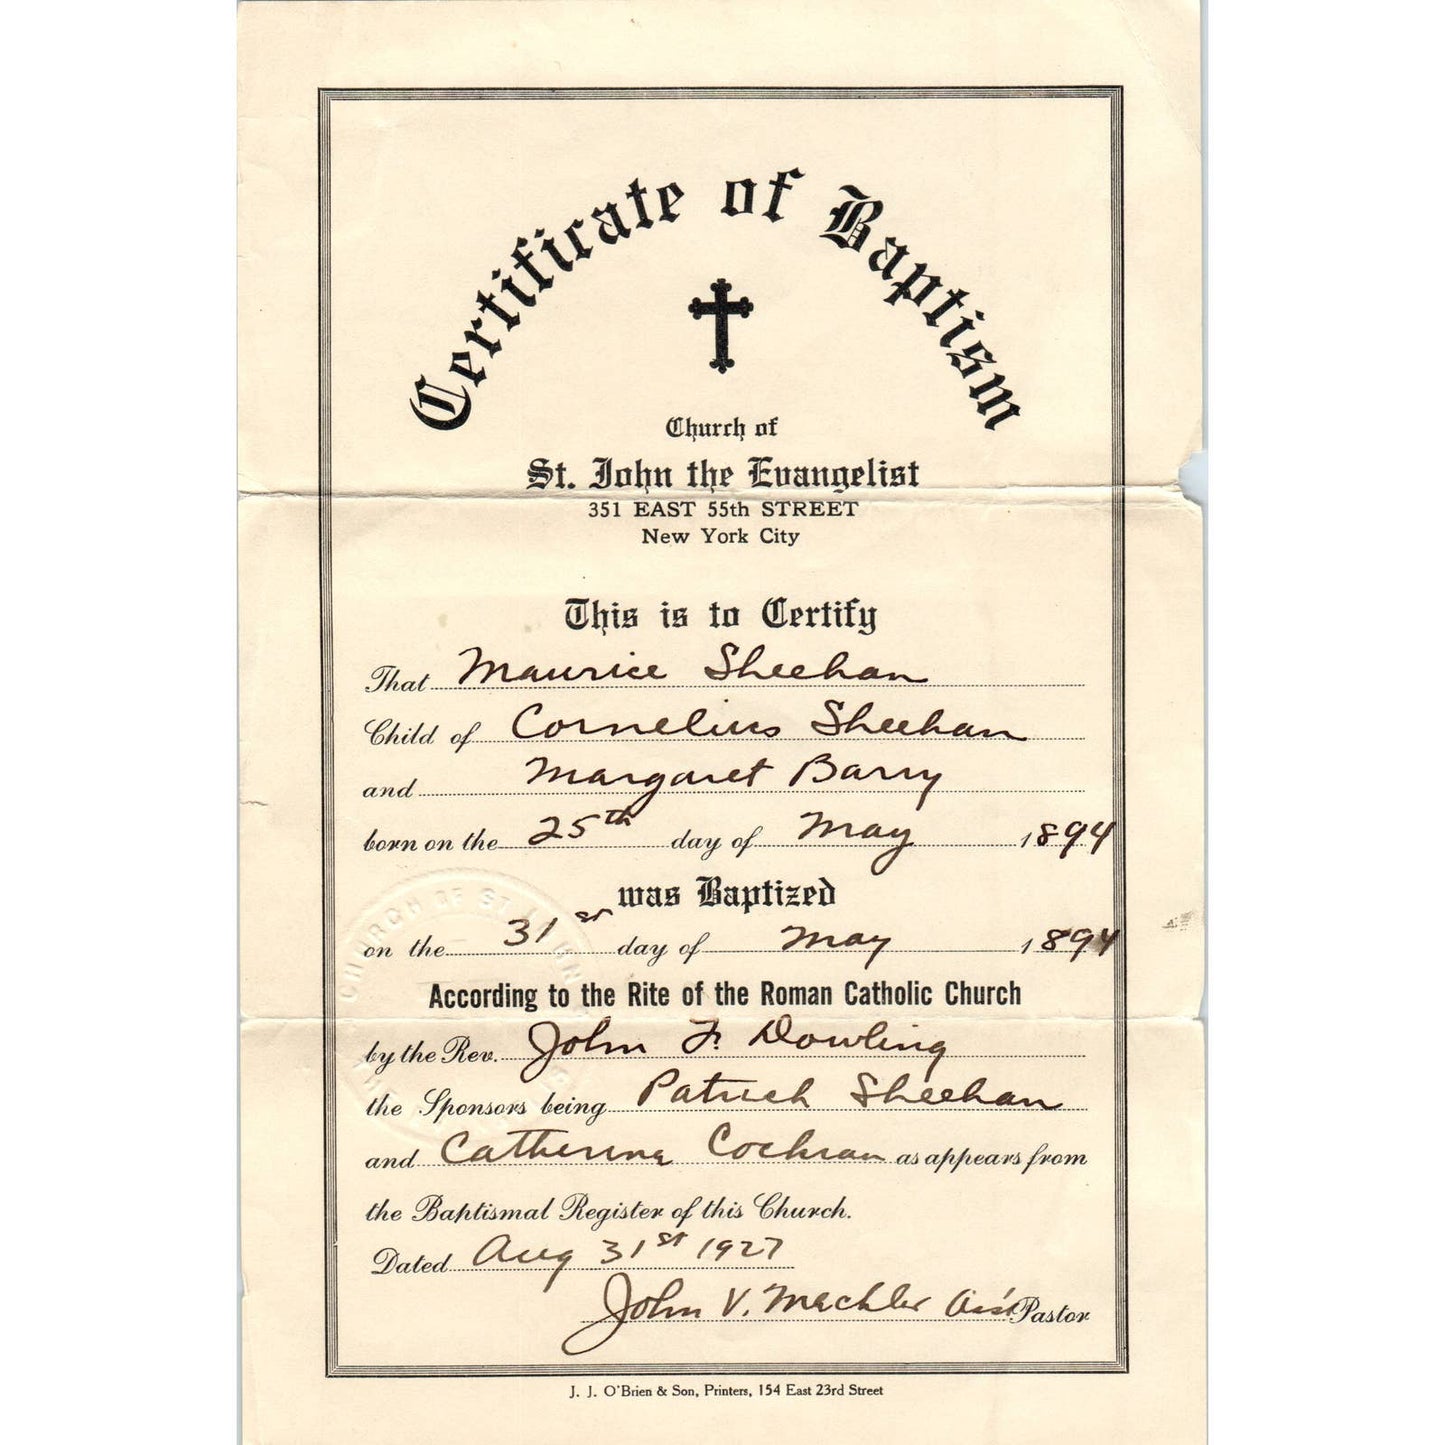 Certificate of Baptism
Church of
St. John the Evangelist
351 EAST 55th STREET
New York City
This is to Certify
That Maurice Sheehan
Child of Cornelius Sheehan
and Margaret Barry
born on the 25th day of May 1894
was Baptized
on the 31st day of May 1894
According to the Rite of the Roman Catholic Church
by the Rev. John F. Dowling
the Sponsors being Patrick Sheehan
and Catherine Cochran as appears from
the Baptismal Register of this Church.
Dated Aug 31st 1927
John V. Mechler Ass't Pastor
J. J. O'Brien & Son, Printers, 154 East 23rd Street
CHURCH OF ST. JOHN